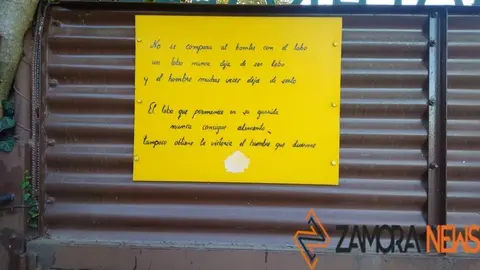 No se compara al hombre con el lobo
un lobo nunca deja de ser lobo
y el hombre muchas veces deja de serlo
El lobo que permanece en su guarida
nunca consigue alimento,
tampoco obtiene la victoria el hombre que duerme
ZAMORA NEWS